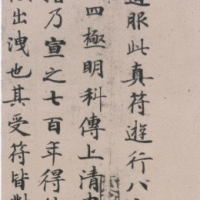 道服此真符遊行八
四極明科傳上清
指乃宣之七百年得
出洩也其受符皆對